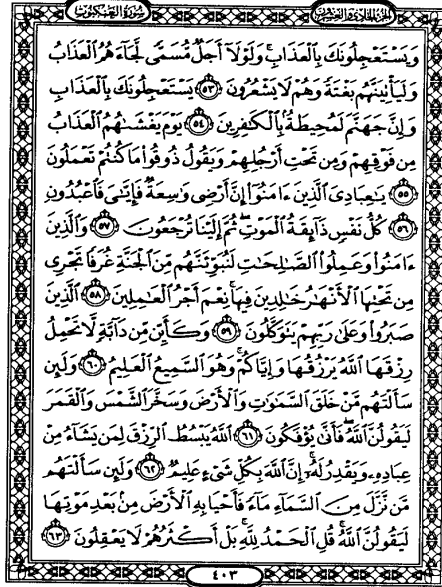 سورة العنكبوت الجزء الحادي والعشرون
وَيَسْتَعْجِلُونَكَ بِالْعَذَابِ وَلَوْلَا أَجَلٌ مُّسَمًّى لَّجَاءَهُمُ الْعَذَابُ
وَلَيَأْتِيَنَّهُم بَغْتَةً وَهُمْ لَا يَشْعُرُونَ ٥٣ يَسْتَعْجِلُونَكَ بِالْعَذَابِ
وَإِنَّ جَهَنَّمَ لَمُحِيطَةٌ بِالْكَافِرِينَ ٥٤ يَوْمَ يَغْشَاهُمُ الْعَذَابُ
مِن فَوْقِهِمْ وَمِن تَحْتِ أَرْجُلِهِمْ وَيَقُولُ ذُوقُوا مَا كُنتُمْ تَعْمَلُونَ
٥٥ يَاعِبَادِيَ الَّذِينَ ءَامَنُوا إِنَّ أَرْضِي وَاسِعَةٌ فَإِيَّايَ فَاعْبُدُونِ
٥٦ كُلُّ نَفْسٍ ذَائِقَةُ الْمَوْتِ ثُمَّ إِلَيْنَا تُرْجَعُونَ ٥٧ وَالَّذِينَ
ءَامَنُوا وَعَمِلُوا الصَّالِحَاتِ لَنُبَوِّئَنَّهُم مِّنَ الْجَنَّةِ غُرَفًا تَجْرِي
مِن تَحْتِهَا الْأَنْهَارُ خَالِدِينَ فِيهَا نِعْمَ أَجْرُ الْعَامِلِينَ ٥٨ الَّذِينَ
صَبَرُوا وَعَلَى رَبِّهِمْ يَتَوَكَّلُونَ ٥٩ وَكَأَيِّن مِّن دَابَّةٍ لَّا تَحْمِلُ
رِزْقَهَا اللَّهُ يَرْزُقُهَا وَإِيَّاكُمْ وَهُوَ السَّمِيعُ الْعَلِيمُ ٦٠ وَلَئِن
سَأَلْتَهُم مَّنْ خَلَقَ السَّمَاوَاتِ وَالْأَرْضَ وَسَخَّرَ الشَّمْسَ وَالْقَمَرَ
لَيَقُولُنَّ اللَّهُ فَأَنَّى يُؤْفَكُونَ ٦١ اللَّهُ يَبْسُطُ الرِّزْقَ لِمَن يَشَاءُ مِنْ
عِبَادِهِ وَيَقْدِرُ لَهُ إِنَّ اللَّهَ بِكُلِّ شَيْءٍ عَلِيمٌ ٦٢ وَلَئِن سَأَلْتَهُم
مَّن نَّزَّلَ مِنَ السَّمَاءِ مَاءً فَأَحْيَا بِهِ الْأَرْضَ مِن بَعْدِ مَوْتِهَا
لَيَقُولُنَّ اللَّهُ قُلِ الْحَمْدُ لِلَّهِ بَلْ أَكْثَرُهُمْ لَا يَعْقِلُونَ ٦٣
٤٠٣